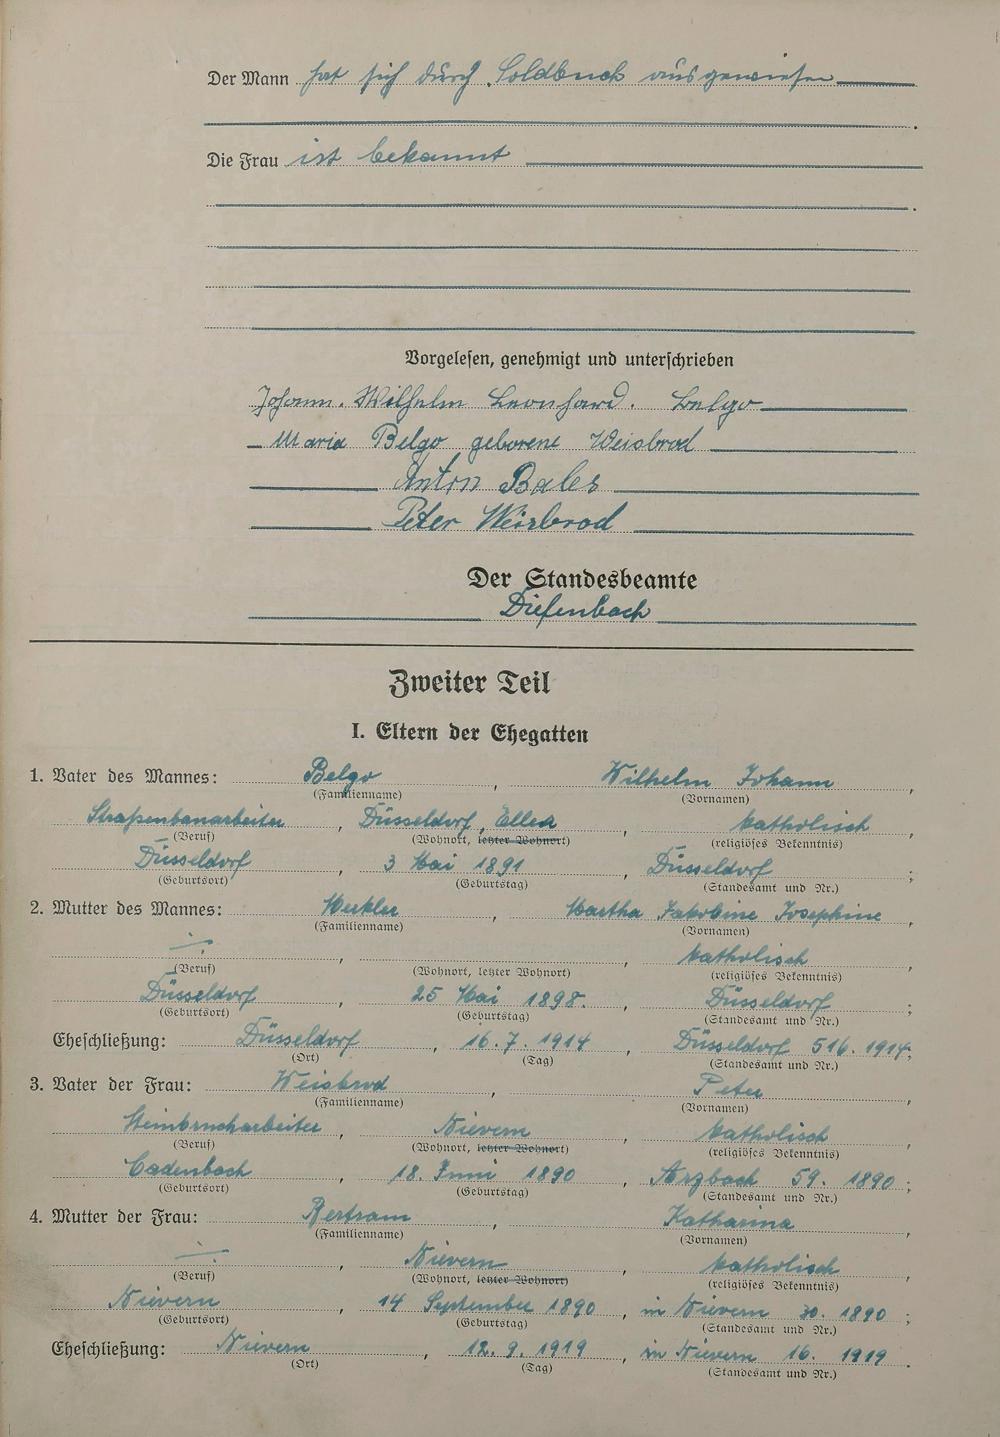 Der Mann hat sich durch Soldbuch ausgewiesen
Die Frau ist bekannt
Vorgelesen, genehmigt und unterschrieben
Johann. Wilhelm Leonhard. Belgo
Maria Belgo geborene Weisbrod
Anton Bales
Peter Weisbrod
Der Standesbeamte
Diefenbach
Zweiter Teil
I. Eltern der Ehegatten
1. Vater des Mannes: Belgo, Wilhelm Johann,
(Familienname) (Vornamen)
Straßenbauarbeiter, Düsseldorf, Eller, katholisch,
(Beruf) (Wohnort, letzter Wohnort) (religiöses Bekenntnis)
Düsseldorf, 3 Mai 1891, Düsseldorf;
(Geburtsort) (Geburtstag) (Standesamt und Nr.)
2. Mutter des Mannes: Merkler, Martha Jakobine Josephine,
(Familienname) (Vornamen)
katholisch,
(Beruf) (Wohnort, letzter Wohnort) (religiöses Bekenntnis)
Düsseldorf, 25 Mai 1898., Düsseldorf;
(Geburtsort) (Geburtstag) (Standesamt und Nr.)
Eheschließung: Düsseldorf, 16. 7. 1914, Düsseldorf 516. 1914;
(Ort) (Tag) (Standesamt und Nr.)
3. Vater der Frau: Weisbrod, Peter,
(Familienname) (Vornamen)
Steinbrucharbeiter, Nievern, katholisch,
(Beruf) (Wohnort, letzter Wohnort) (religiöses Bekenntnis)
Cadenbach, 18. Juni 1890, Arzbach 59. 1890;
(Geburtsort) (Geburtstag) (Standesamt und Nr.)
4. Mutter der Frau: Bertram, Katharina,
(Familienname) (Vornamen)
Nievern, katholisch,
(Beruf) (Wohnort, letzter Wohnort) (religiöses Bekenntnis)
Nievern, 14 September 1890, in Nievern 30. 1890;
(Geburtsort) (Geburtstag) (Standesamt und Nr.)
Eheschließung: Nievern, 12. 9. 1919, in Nievern 16. 1919.
(Ort) (Tag) (Standesamt und Nr.)